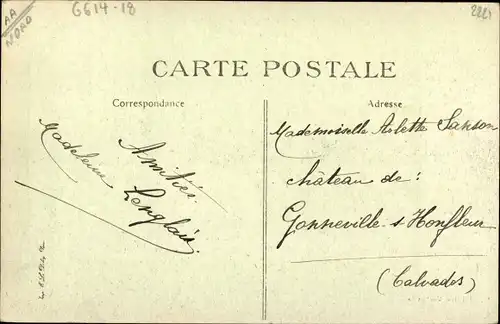 AA
NORD
G614-18
2221
CARTE POSTALE
Correspondance
Adresse
Amitiés
Madeleine
Lenglais
Mademoiselle Arlette Sanson
château de :
Gonneville s Honfleur
(Calvados)